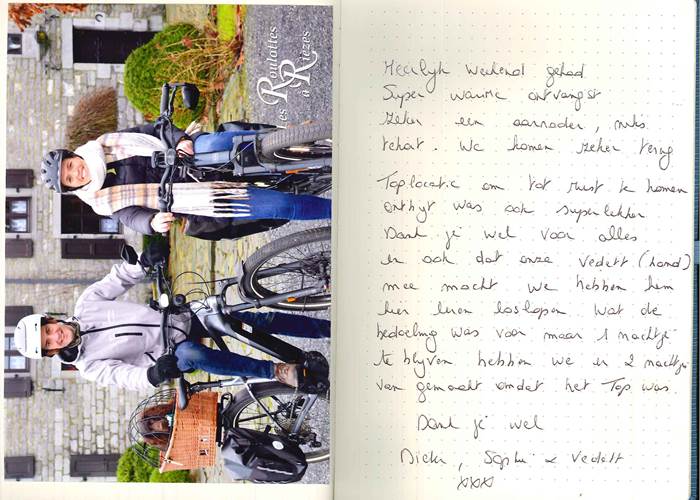 Les Roulottes
à Rièzes
Heerlijk weekend gehad
Super warme ontvangst
zeker een aanrader, niks
tekort. We komen zeker terug
Toplocatie om tot rust te komen
ontbyt was ook superlekker
Dank je wel voor alles
en ook dat onze Vedett (hond)
mee mocht we hebben hem
hier leren loslopen wat de
bedoeling was voor maar 1 nachtje
te blyven hebben we er 2 nachtjes
van gemaakt omdat het Top was.
Dank je wel
Sophie & Vedett
xxx